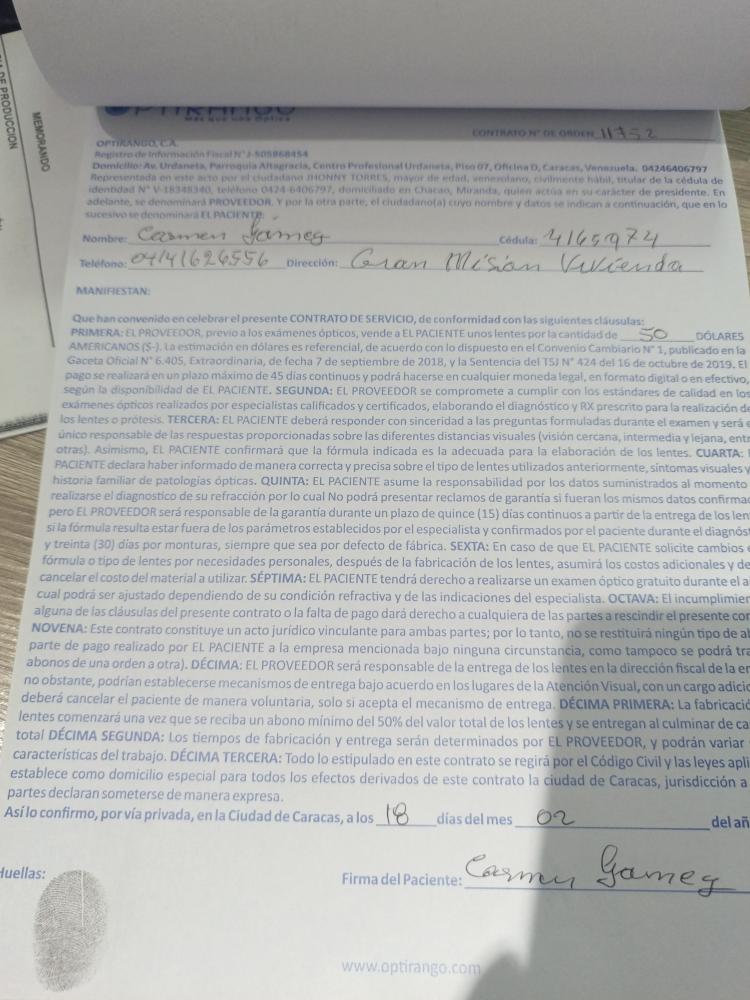 DE PRODUCCION
MEMORANDO
OPTIRANGO
Más que una Óptica
CONTRATO N° DE ORDEN 11752
OPTIRANGO, C.A.
Registro de Información Fiscal N° J-505868454
Domicilio: Av. Urdaneta, Parroquia Altagracia, Centro Profesional Urdaneta, Piso 07, Oficina D, Caracas, Venezuela. 04246406797
Representada en este acto por el ciudadano JHONNY TORRES, mayor de edad, venezolano, civilmente hábil, titular de la cédula de
identidad N° V-18348340, teléfono 0424-6406797, domiciliado en Chacao, Miranda, quien actúa en su carácter de presidente. En
adelante, se denominará PROVEEDOR. Y por la otra parte, el ciudadano(a) cuyo nombre y datos se indican a continuación, que en lo
sucesivo se denominará EL PACIENTE:
Nombre: Carmen Gámez Cédula: 4165974
Teléfono: 04141626556 Dirección: Gran Misión Vivienda
MANIFIESTAN:
Que han convenido en celebrar el presente CONTRATO DE SERVICIO, de conformidad con las siguientes cláusulas:
PRIMERA: EL PROVEEDOR, previo a los exámenes ópticos, vende a EL PACIENTE unos lentes por la cantidad de 50 DÓLARES
AMERICANOS ($-). La estimación en dólares es referencial, de acuerdo con lo dispuesto en el Convenio Cambiario N° 1, publicado en la
Gaceta Oficial N° 6.405, Extraordinaria, de fecha 7 de septiembre de 2018, y la Sentencia del TSJ N° 424 del 16 de octubre de 2019. El
pago se realizará en un plazo máximo de 45 días continuos y podrá hacerse en cualquier moneda legal, en formato digital o en efectivo,
según la disponibilidad de EL PACIENTE. SEGUNDA: EL PROVEEDOR se compromete a cumplir con los estándares de calidad en los
exámenes ópticos realizados por especialistas calificados y certificados, elaborando el diagnóstico y RX prescrito para la realización de
los lentes o prótesis. TERCERA: EL PACIENTE deberá responder con sinceridad a las preguntas formuladas durante el examen y será e
único responsable de las respuestas proporcionadas sobre las diferentes distancias visuales (visión cercana, intermedia y lejana, entr
otras). Asimismo, EL PACIENTE confirmará que la fórmula indicada es la adecuada para la elaboración de los lentes. CUARTA: E
PACIENTE declara haber informado de manera correcta y precisa sobre el tipo de lentes utilizados anteriormente, síntomas visuales y
historia familiar de patologías ópticas. QUINTA: EL PACIENTE asume la responsabilidad por los datos suministrados al momento
realizarse el diagnostico de su refracción por lo cual No podrá presentar reclamos de garantía si fueran los mismos datos confirmad
pero EL PROVEEDOR será responsable de la garantía durante un plazo de quince (15) días continuos a partir de la entrega de los len
si la fórmula resulta estar fuera de los parámetros establecidos por el especialista y confirmados por el paciente durante el diagnóst
y treinta (30) días por monturas, siempre que sea por defecto de fábrica. SEXTA: En caso de que EL PACIENTE solicite cambios
fórmula o tipo de lentes por necesidades personales, después de la fabricación de los lentes, asumirá los costos adicionales y de
cancelar el costo del material a utilizar. SÉPTIMA: EL PACIENTE tendrá derecho a realizarse un examen óptico gratuito durante el a
cual podrá ser ajustado dependiendo de su condición refractiva y de las indicaciones del especialista. OCTAVA: El incumplimien
alguna de las cláusulas del presente contrato o la falta de pago dará derecho a cualquiera de las partes a rescindir el presente con
NOVENA: Este contrato constituye un acto jurídico vinculante para ambas partes; por lo tanto, no se restituirá ningún tipo de ab
parte de pago realizado por EL PACIENTE a la empresa mencionada bajo ninguna circunstancia, como tampoco se podrá tra
abonos de una orden a otra). DÉCIMA: EL PROVEEDOR será responsable de la entrega de los lentes en la dirección fiscal de la em
no obstante, podrían establecerse mecanismos de entrega bajo acuerdo en los lugares de la Atención Visual, con un cargo adicio
deberá cancelar el paciente de manera voluntaria, solo si acepta el mecanismo de entrega. DÉCIMA PRIMERA: La fabricació
lentes comenzará una vez que se reciba un abono mínimo del 50% del valor total de los lentes y se entregan al culminar de ca
total DÉCIMA SEGUNDA: Los tiempos de fabricación y entrega serán determinados por EL PROVEEDOR, y podrán variar
características del trabajo. DÉCIMA TERCERA: Todo lo estipulado en este contrato se regirá por el Código Civil y las leyes apli
establece como domicilio especial para todos los efectos derivados de este contrato la ciudad de Caracas, jurisdicción a
partes declaran someterse de manera expresa.
Así lo confirmo, por vía privada, en la Ciudad de Caracas, a los 18 días del mes 02 del añ
Huellas:
Firma del Paciente: Carmen Gamez
www.optirango.com